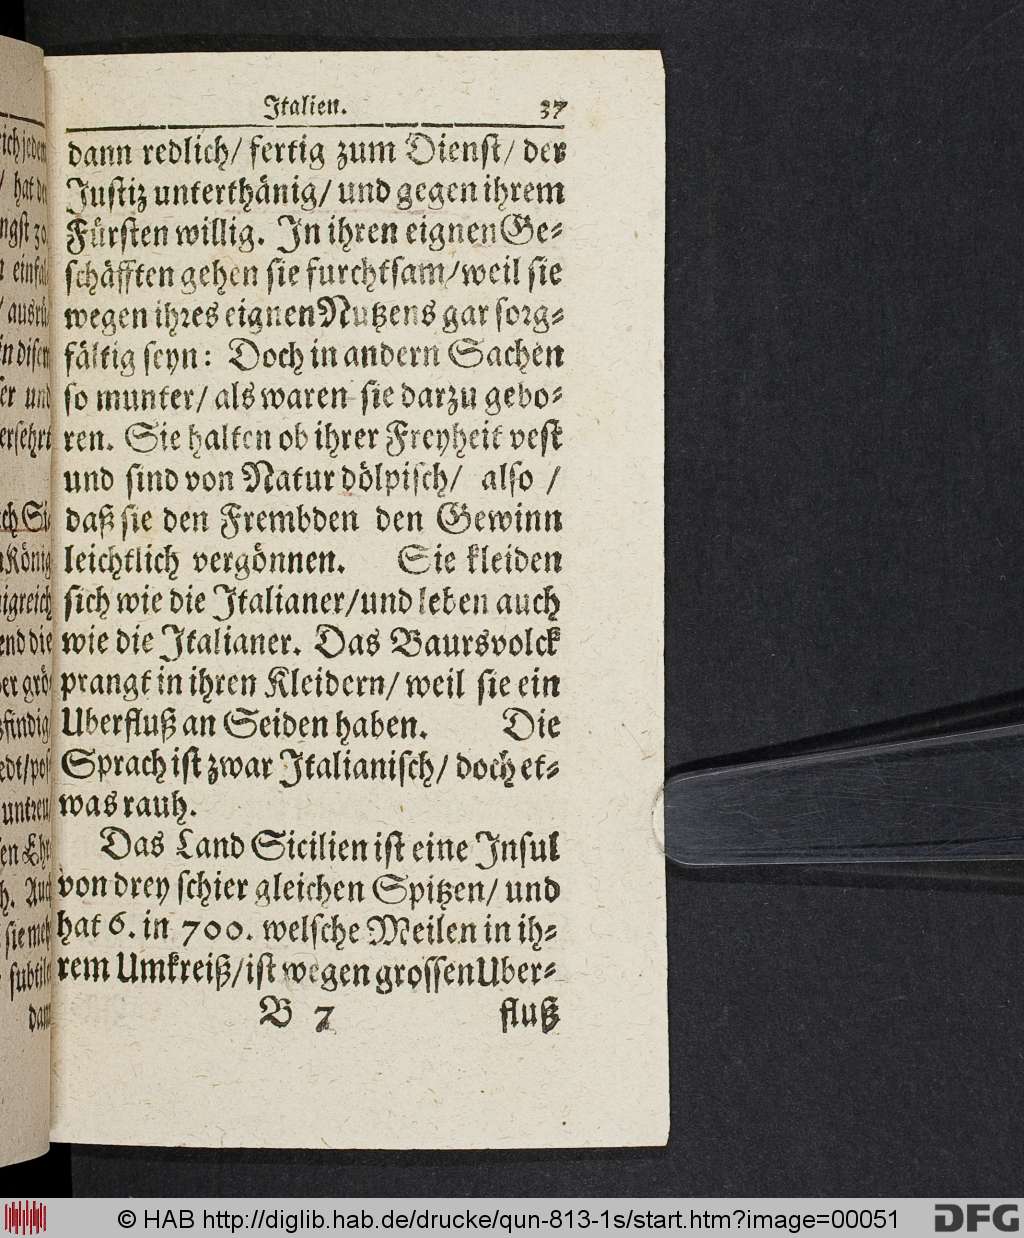 Italien. 37
dann redlich/ fertig zum Dienst/ der
Justiz unterthänig/ und gegen ihrem
Fürsten willig. In ihren eignen Ge-
schäfften gehen sie furchtsam/ weil sie
wegen ihres eignen Nutzens gar sorg-
fältig seyn: Doch in andern Sachen
so munter/ als waren sie darzu gebo-
ren. Sie halten ob ihrer Freyheit vest
und sind von Natur dölpisch/ also /
daß sie den Frembden den Gewinn
leichtlich vergönnen. Sie kleiden
sich wie die Italianer/ und leben auch
wie die Italianer. Das Baursvolck
prangt in ihren Kleidern/ weil sie ein
Uberfluß an Seiden haben. Die
Sprach ist zwar Italianisch/ doch et-
was rauh.
Das Land Sicilien ist eine Insul
von drey schier gleichen Spitzen/ und
hat 6. in 700. welsche Meilen in ih-
rem Umkreiß/ ist wegen grossen Uber-
B 7 fluß
© HAB http://diglib.hab.de/drucke/qun-813-1s/start.htm?image=00051
DFG